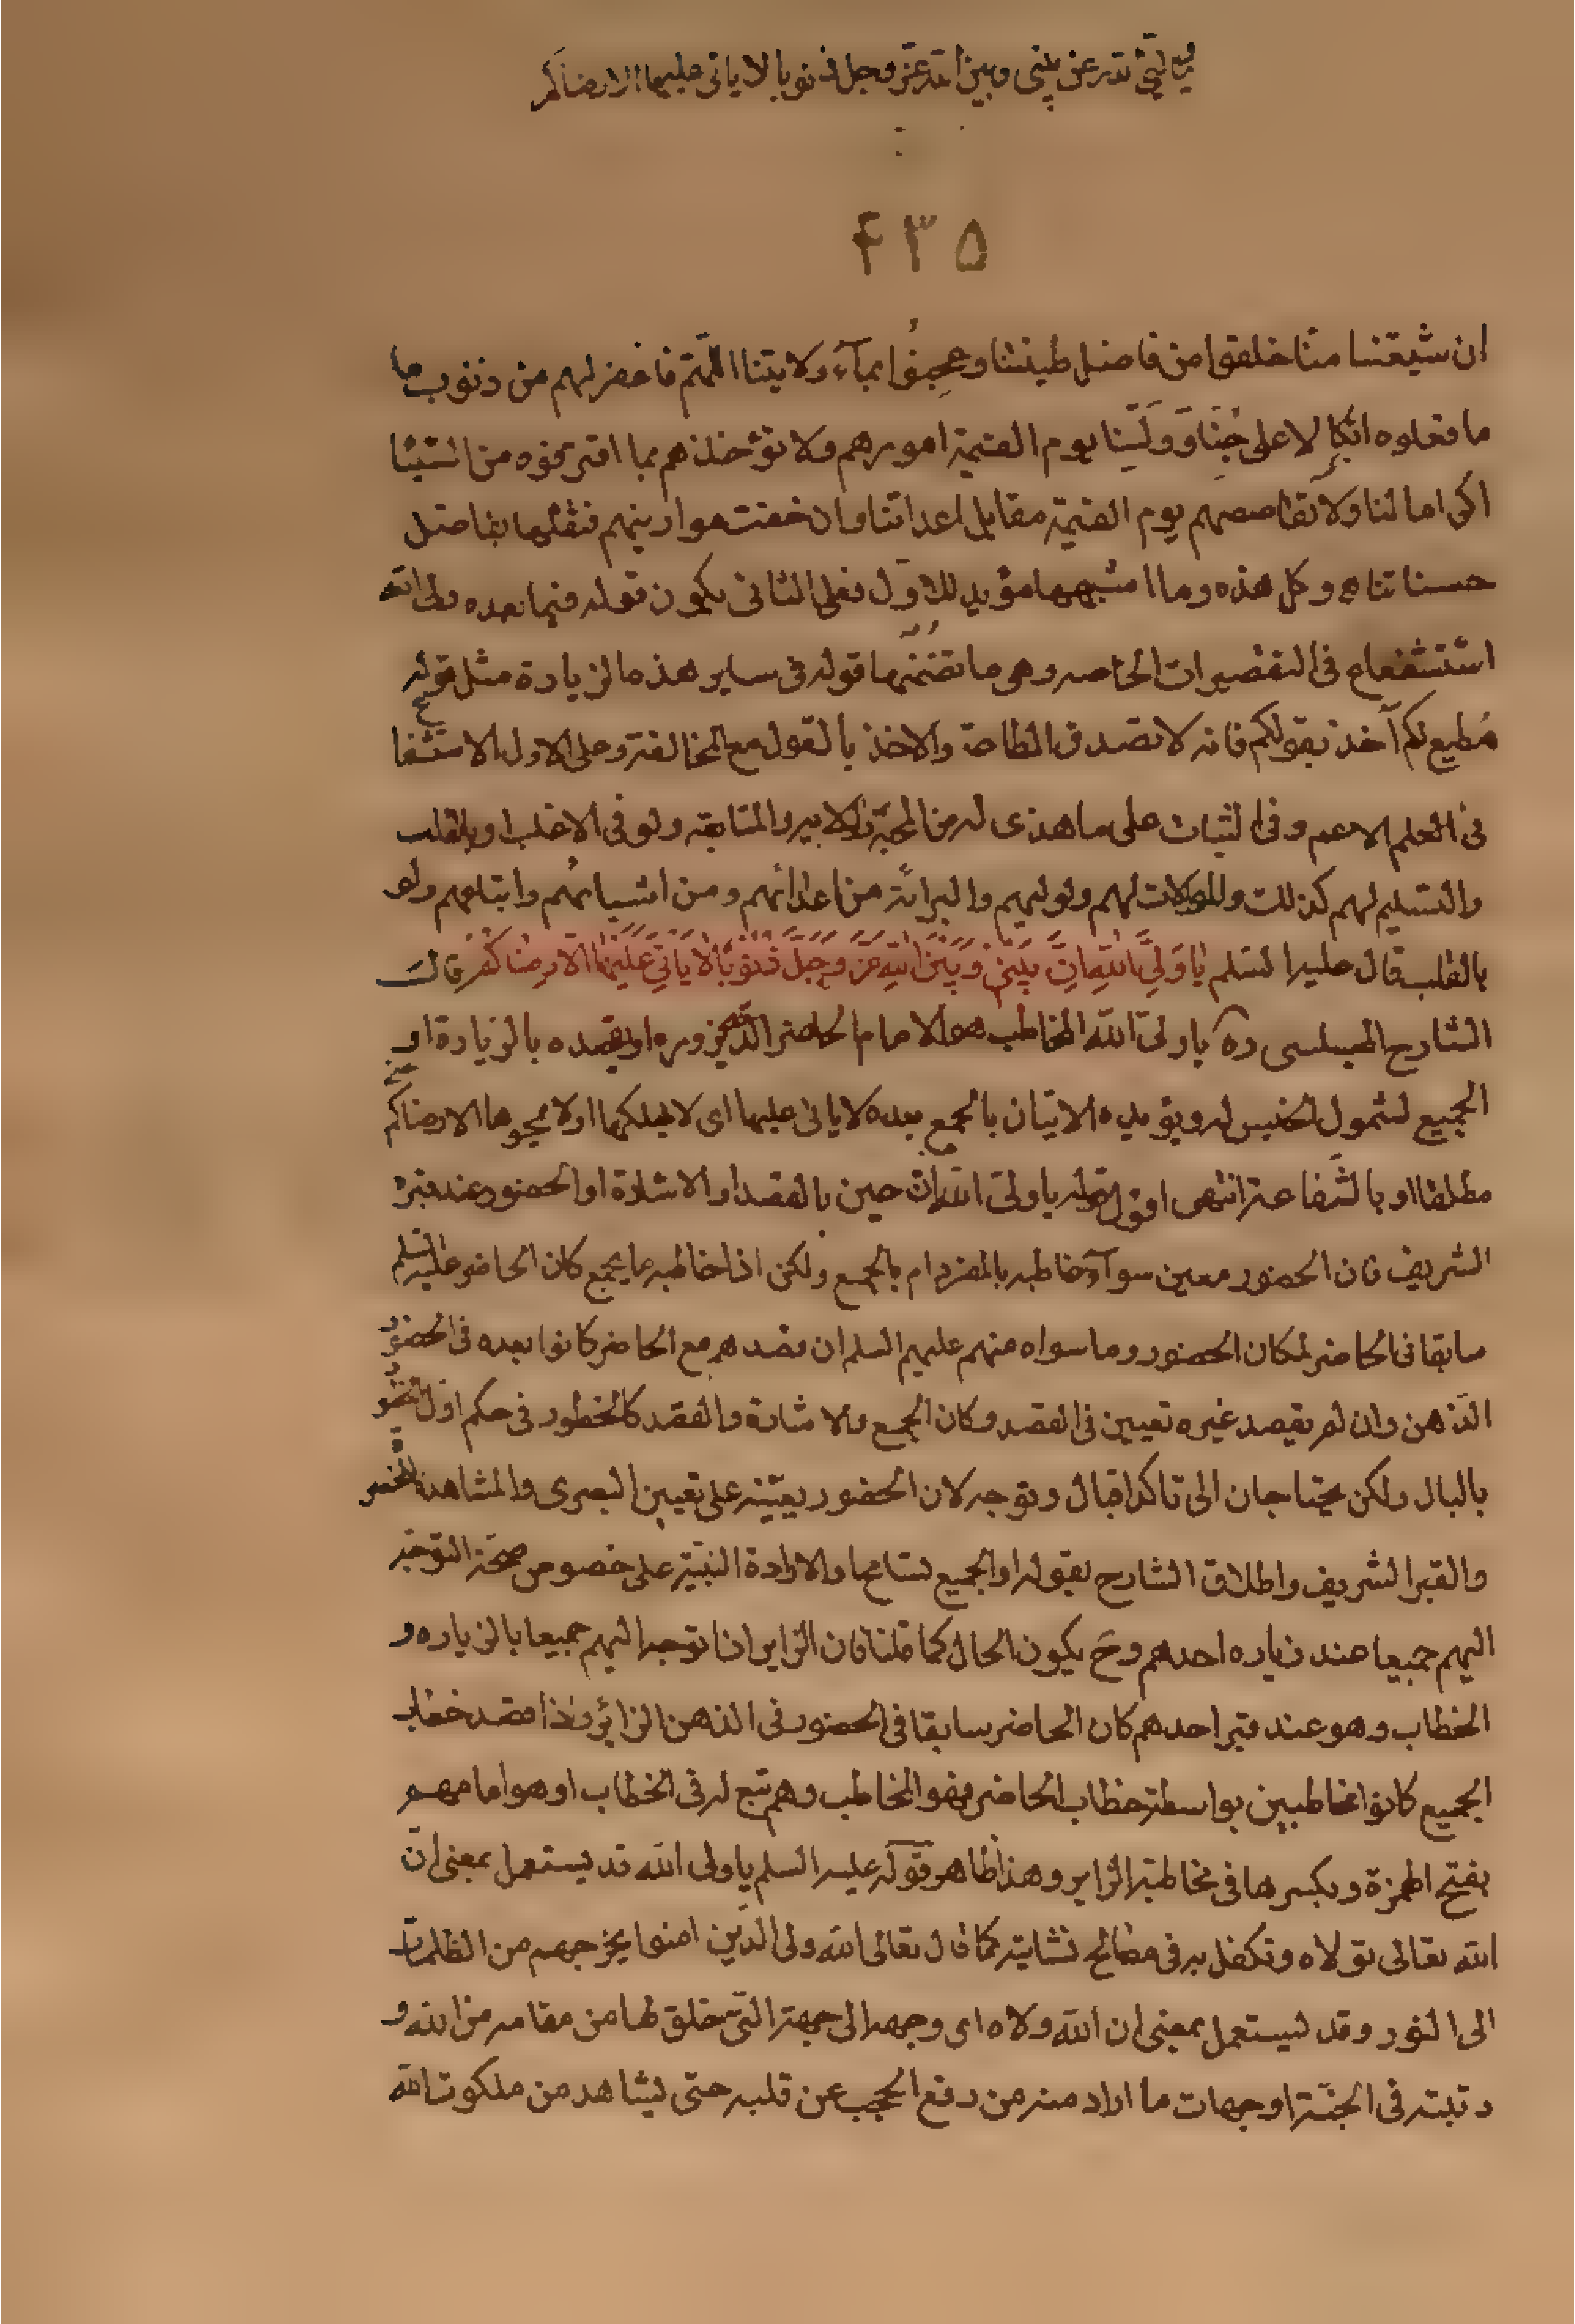 يا ولي الله ان بيني وبين الله عز وجل ذنوبا لا ياتي عليها الا رضاكم
۴۳۵
ان شيعتنا منّا خلقوا من فاضل طينتنا وعجنُوا بمآء ولايتنا اللّهمّ فاغفر لهم من ذنوب ما
ما فعلوه اتّكالا على حُبّنا وَوَلّينا يوم القيمة امورهم ولا تؤخذهم بما اقترفوه من السّيئا
اكراما لنا ولا تقاصصهم يوم القيمة مقابل اعدائنا وان خفت موازينهم فثقّلها بفاضل
حسناتنا ه وكل هذه وما اشبهها مؤيد للاوّل فعلى الثانى يكون قوله فيما بعده
استشفعاع فى التقصيرات الخاصه وهو ما تضمّنها قوله فى ساير هذه الزيارة مثل قوله
مُطيع لكم آخذ بقولكم فانه لا تصدق الطاعة والاخذ بالقول مع المخالفة وعلى الاول الاستشفا
فى العلم الاعم وفى الثبات على ما هدى له من المحبّة والمتابعة ولو فى الاغلب او بالقلب
والتسليم لهم كذلك والموالات لهم ولوليهم والبرائة من اعدائهم ومن اشياعهم واتباعهم ولو
بالقلب قال عليه السّلم يا وَلِيَّ اللهِ اِنَّ بَيْنى وَبَيْنَ اللهِ عَزَّ وَجَلَّ ذُنُوباً لا يَأتى عَلَيْها اِلّا رِضاكُمْ قال
الشارح المجلسى ره يا ولىّ الله المخاطب هو الامام الحاضر الّذى يزوره او يقصده بالزيارة او
الجميع لشمول الجنس له ويؤيده الاتيان بالجمع بعده لا ياتى عليها اى لا يهلكها او لا يمحوها الا رضاكم
مطلقا او بالشّفاعة انتهى اقول قوله يا ولىّ الله ان حين بالقصد او الاشارة او الحضور عند قبره
الشريف فان الحضور معين سوآء خاطبه بالمفرد ام بالجمع ولكن اذا خاطبه بما يجمع كان الحاضر عليه السّلم
سابقا فى الحاضر لمكان الحضور وما سواه منهم عليهم السلم ان قصدهم مع الحاضر كانوا بعده فى الحضور
الذهن وان لم يقصد غيره تعيين فى القصد وكان الجمع والاشارة والقصد كالخطور فى حكم اول
بالبال ولكن يحتاجان الى تاكد اقبال وتوجه لان الحضور يعيّنه على تعيين البصرى والمشاهدة
والقبر الشريف واطلاق الشارح بقوله او الجميع تسامحا والارادة على خصوص صحّة التوجّه
اليهم جميعا عند زياره احدهم وح يكون الحال كما قلنا فان الزاير اذا توجه اليهم جميعا بالزياره و
الخطاب وهو عند قبر احدهم كان الحاضر سابقا فى الحضور فى الذهن الزائر واذا قصد خطاب
الجميع كانوا مخاطبين بواسطة خطاب الحاضر فهو المخاطب وهم تبع له فى الخطاب او هو امامهم
بفتح الهمزة وبكسرها فى مخاطبة الزاير وهذا ظاهر قوله عليه السلم يا ولى الله قد يستعمل بمعنى انّ
الله تعالى تولاه وتكفل به فى مصالح نشايته كما قال تعالى الله ولى الّذين امنوا يخرجهم من الظلمات
الى النور وقد ليستعمل بمعنى ان الله ولاه اى وجهه الى جهة الّتى خلق لها من مقامه من الله و
رتبته فى الجنّة او جهات ما اراد منه من رفع الحجب عن قلبه حتى ليشاهد من ملكوت الله